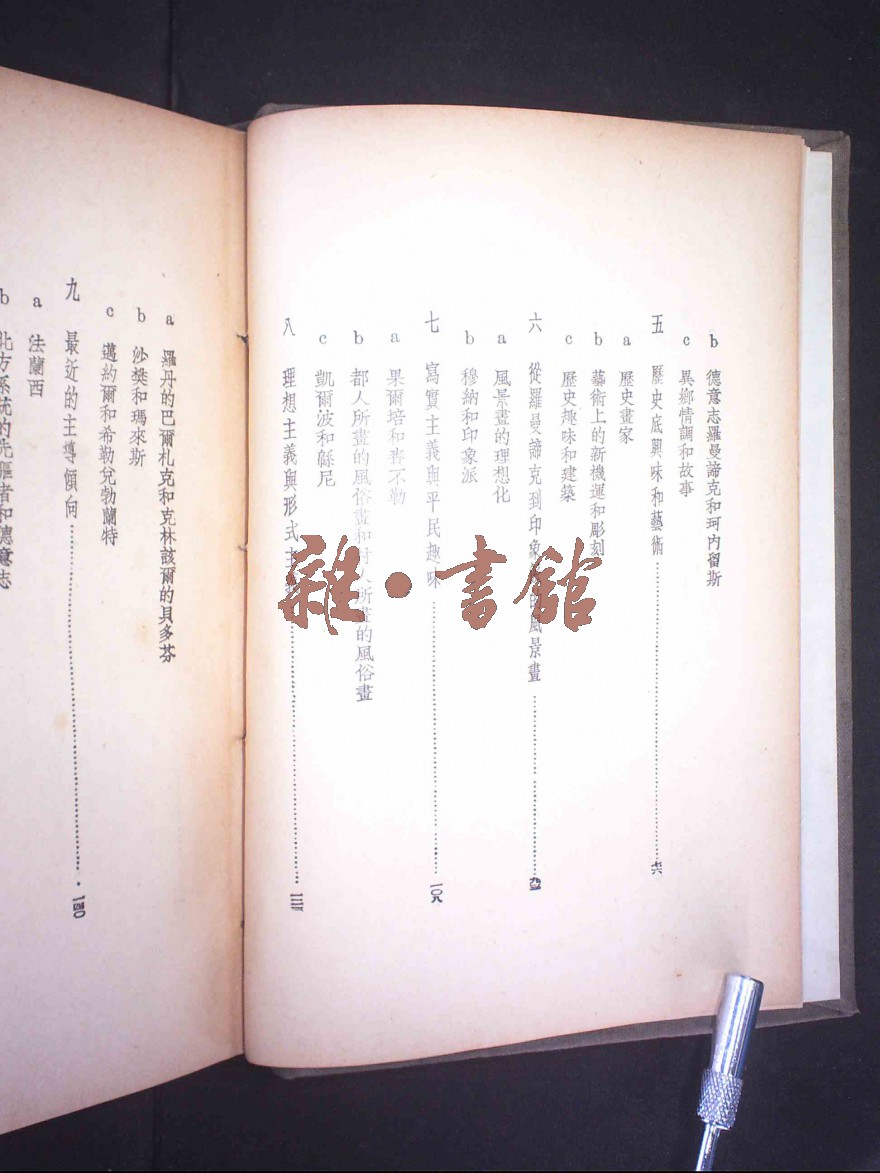 b 德意志羅曼諦克和珂內留斯
c 異鄉情調和故事
五 歷史底興味和藝術
a 歷史畫家
b 藝術上的新機運和彫刻
c 歷史趣味和建築
六 從羅曼諦克到印象 風景畫
a 風景畫的理想化
b 穆納和印象派
七 寫實主義與平民趣味 一〇八
a 果爾培和 不勒
b 都人所畫的風俗畫和村人所畫的風俗畫
c 凱爾波和 尼
八 理想主義與形式主
a 羅丹的巴爾札克和克林該爾的貝多芬
b 沙樊和瑪來斯
c 邁約爾和希勒兌勃蘭特
九 最近的主導傾向 一四〇
a 法蘭西
b 北方系統的先驅者和德意志
雜·書館